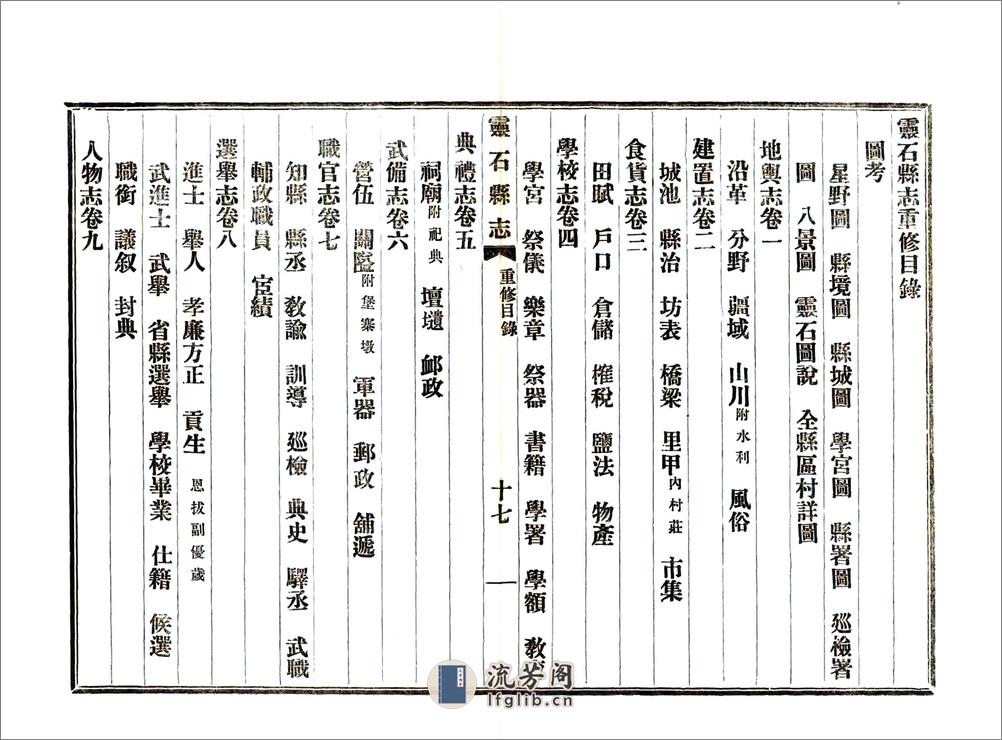 靈石縣志重修目錄
圖考
星野圖 縣境圖 縣城圖 學宮圖 縣署圖 廵檢署
圖 八景圖 靈石圖說 全縣區村詳圖
地輿志卷一
沿革 分野 疆域 山川附水利 風俗
建置志卷二
城池 縣治 坊表 橋梁 里甲內村莊 市集
食貨志卷三
田賦 戶口 倉儲 榷稅 鹽法 物產
學校志卷四
學宮 祭儀 樂章 祭器 書籍 學署 學額 教
靈石縣志 重修目錄 十七
典禮志卷五
祠廟附祀典 壇壝 卹政
武備志卷六
營伍 關隘附堡寨墩 軍器 郵政 舖遞
職官志卷七
知縣 縣丞 教諭 訓導 廵檢 典史 驛丞 武職
輔政職員 宦績
選舉志卷八
進士 舉人 孝廉方正 貢生 恩拔副優歲
武進士 武舉 省縣選舉 學校畢業 仕籍 候選
職銜 議叙 封典
人物志卷九
流芳阁
lfglib.cn